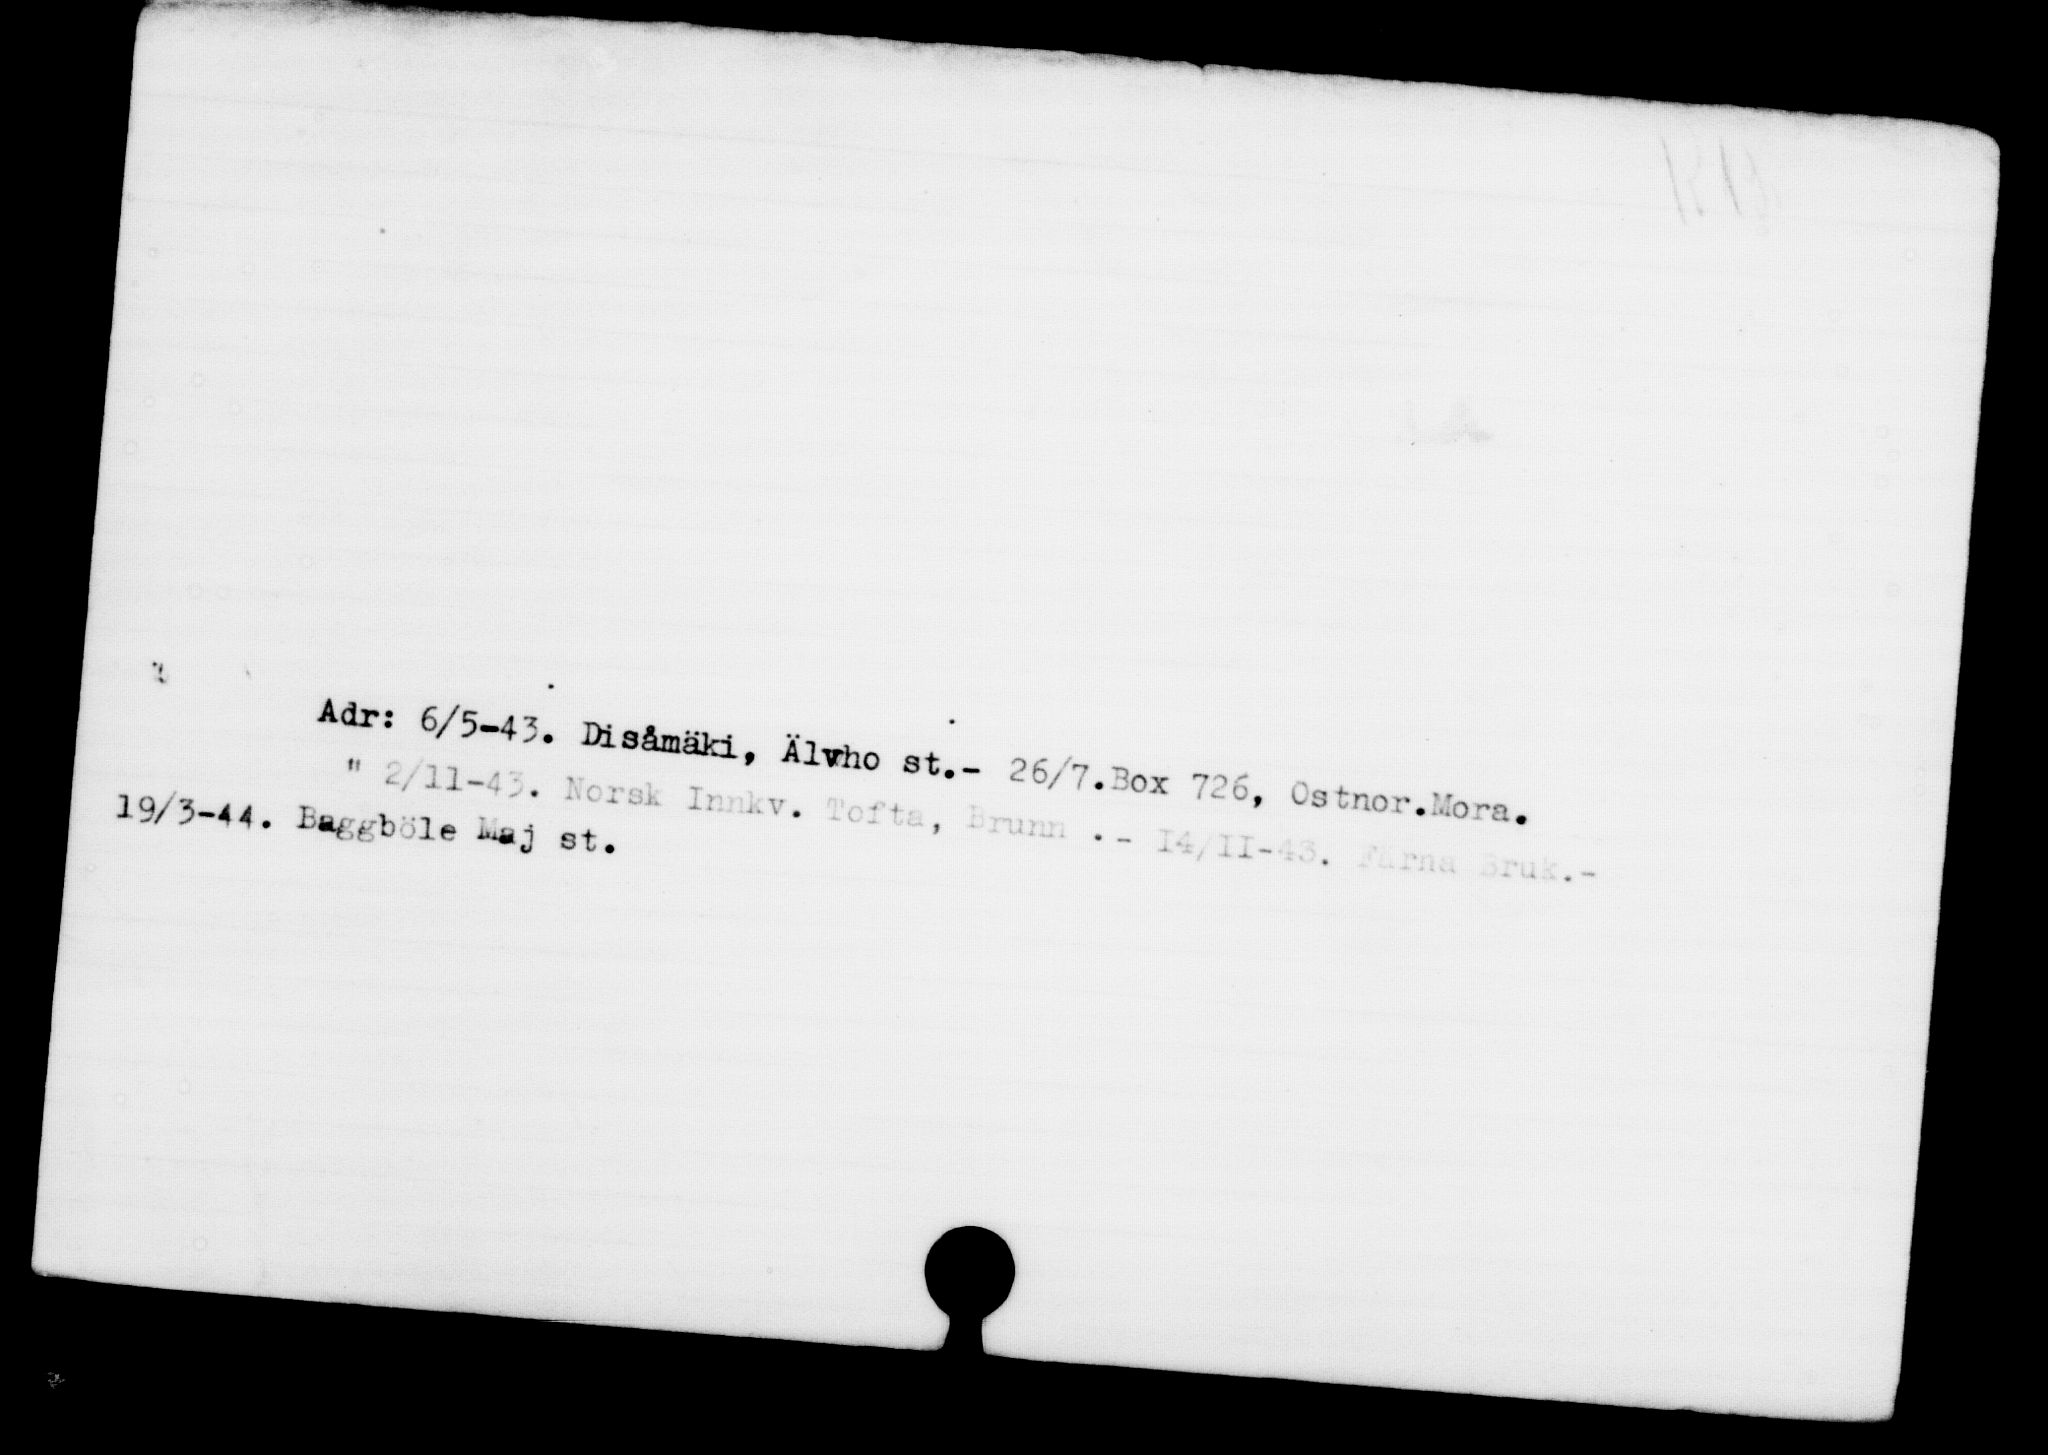 Adr: 6/5-43. Disåmäki, Älvho st.- 26/7.Box 726, Ostnor.Mora.
" 2/11-43. Norsk Innkv. Tofta, Brunn .- I4/II-43. Färna Bruk.-
19/3-44. Baggböle Maj st.